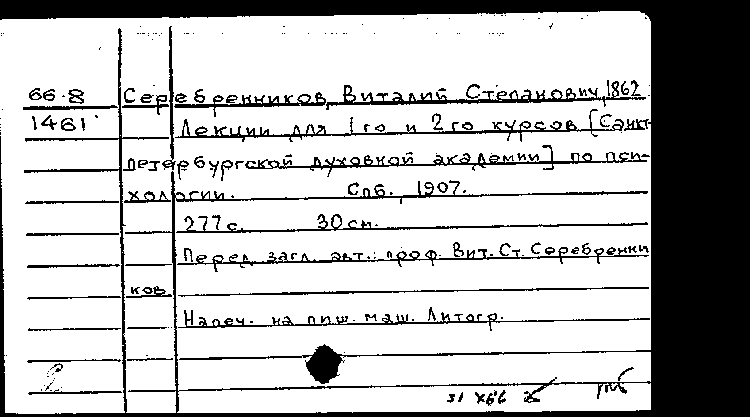 66-8 Серебренников, Виталий Степанович, 1862
1461 Лекции для 1го и 2го курсов [Санкт-
петербургской духовной академии] по пси-
хологии. Спб., 1907.
277с. 30см.
Перед загл. авт.: проф. Вит. Ст. Серебренни
ков
Напеч. на пиш. маш. Литогр.
31 X66